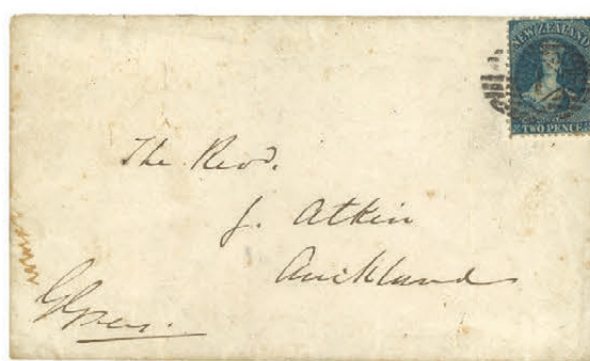 NEW ZEALAND
TWO PENCE
The Revd.
J. Atkin
Auckland